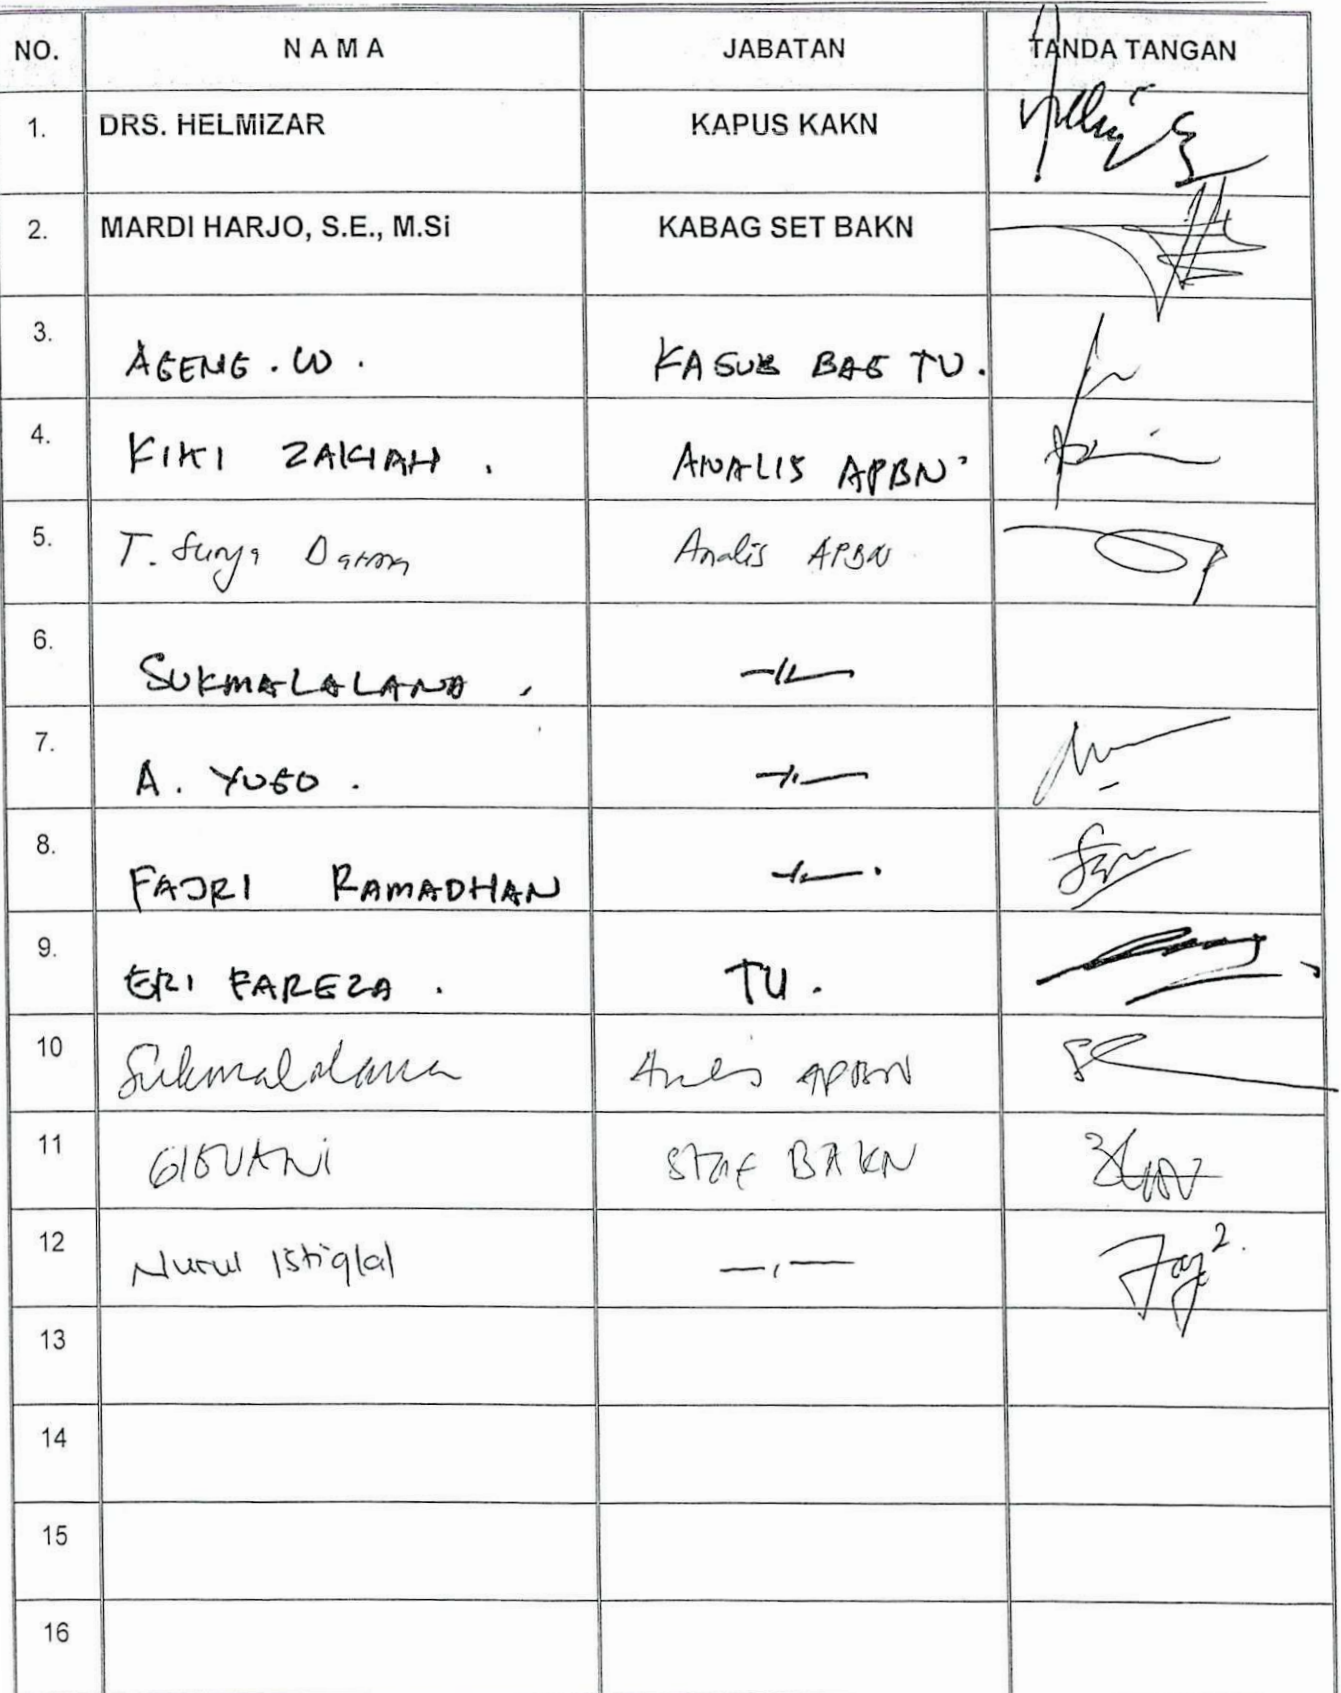 NO. N A M A JABATAN TANDA TANGAN
1. DRS. HELMIZAR KAPUS KAKN
2. MARDI HARJO, S.E., M.Si KABAG SET BAKN
3. AGENG . W . KASUB BAG TU.
4. KIKI ZAKIAH . ANALIS APBN
5. T. Surya Darma Analis APBN
6. SUKMALALANA . -//-
7. A. YUGO . -//-
8. FAJRI RAMADHAN -//- .
9. ERI FAREZA . TU .
10 Sukmalalana Analis APBN
11 GIOVANI STAF BAKN
12 Nurul Istiqlal — , —
13
14
15
16